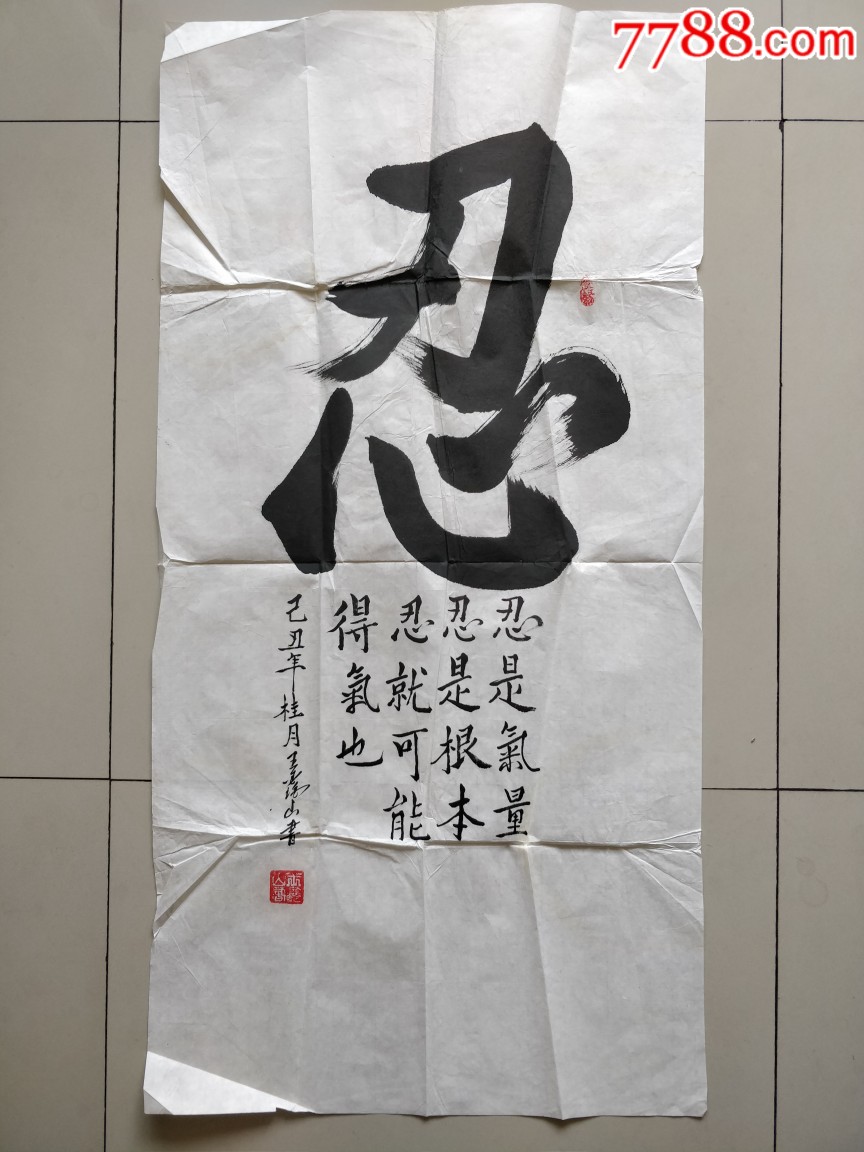 7788.com
忍
忍是氣量
忍是根本
忍就可能
得氣也
己丑年桂月王
山書